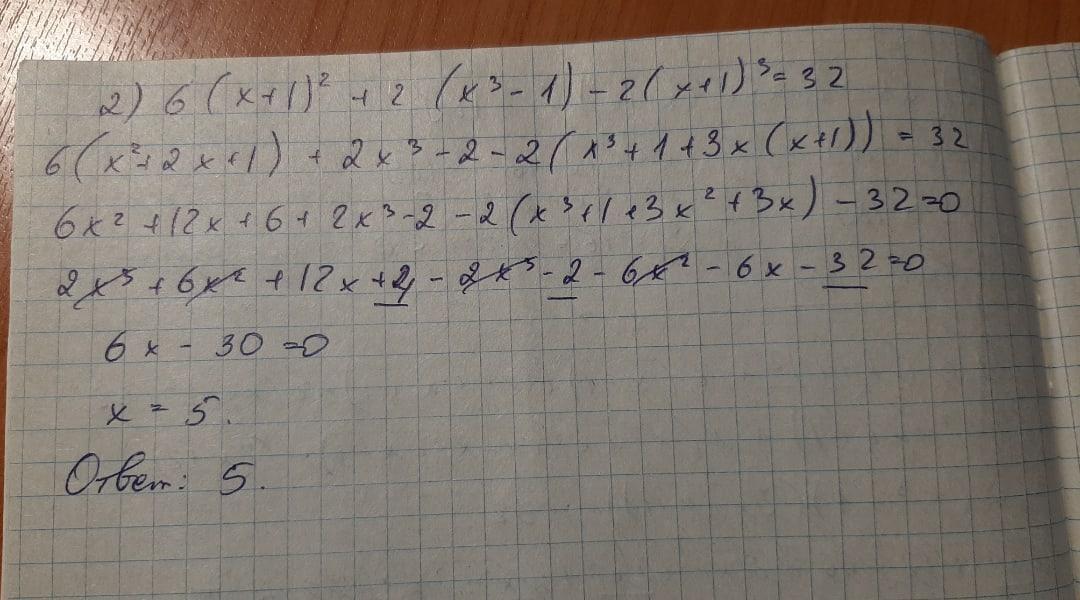 2) 6(x+1)² + 2 (x³ - 1) - 2(x+1)³ = 32
6(x²+2x+1) + 2x³ - 2 - 2(x³+1+3x(x+1)) = 32
6x² + 12x + 6 + 2x³ - 2 - 2(x³+1+3x²+3x) - 32 = 0
2x³ + 6x² + 12x + 4 - 2x³ - 2 - 6x² - 6x - 32 = 0
6x - 30 = 0
x = 5.
Ответ: 5.